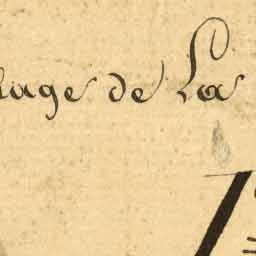 lage de La